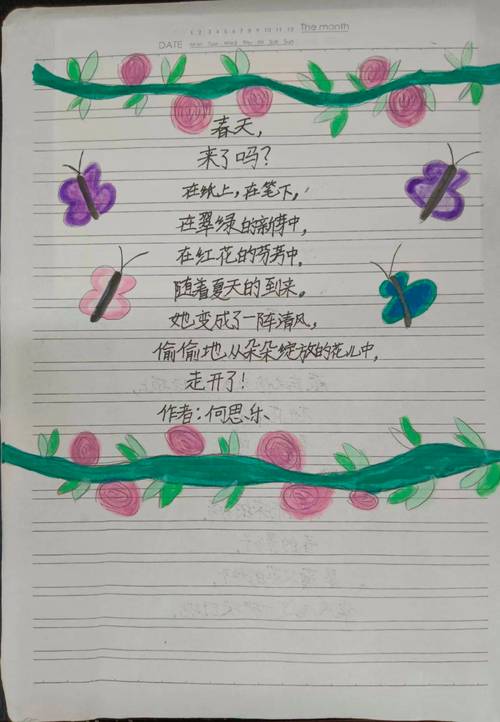 1 2 3 4 5 6 7 8 9 10 11 12 The month
DATE Mon Tue Wed Thu Fri Sat Sun
春天，
来了吗？
在纸上，在笔下，
在翠绿的新特中，
在红花的芬芳中。
随着夏天的到来。
她变成了一阵清风，
偷偷地从朵朵绽放的花儿中，
走开了！
作者：何思乐、